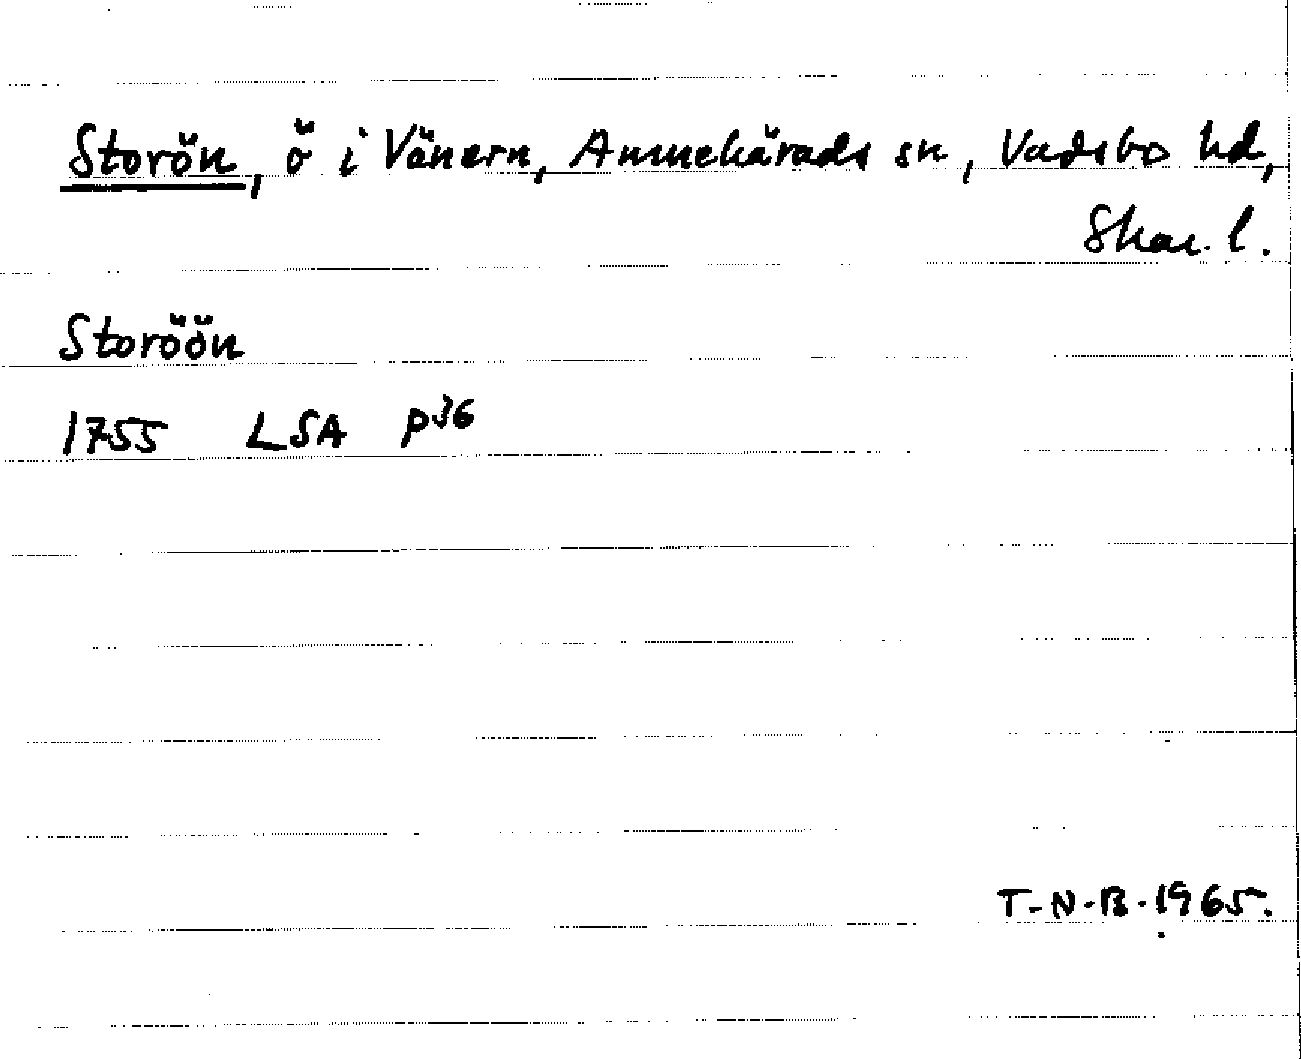 Storön, ö i Vänern, Amnehärads sn, Vadsbo hd,
Skar. l.
Storöön
1755 LSA p36
T-N-B-1965.